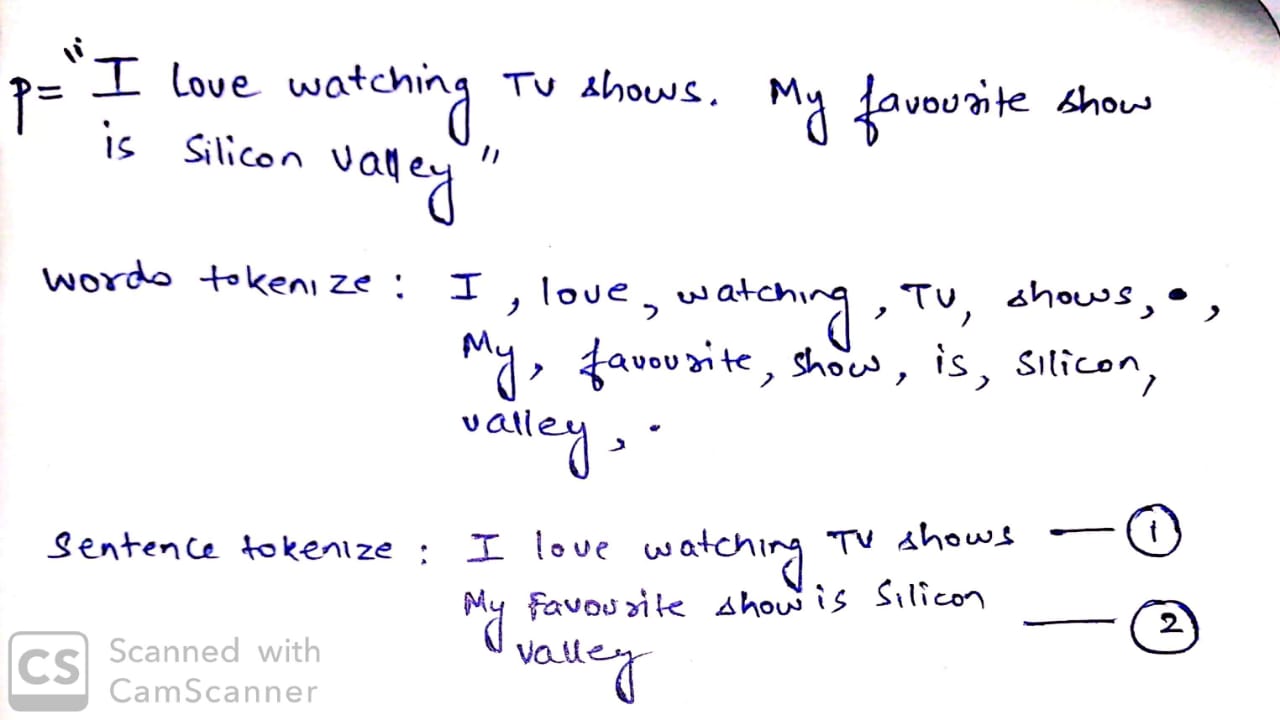 p= "I love watching TV shows. My favourite show
is Silicon valley"
words tokenize : I , love, watching, TV, shows, •,
My, favourite, show, is, Silicon,
valley, .
Sentence tokenize : I love watching TV shows — 1
My Favourite show is Silicon
valley — 2
CS Scanned with
CamScanner